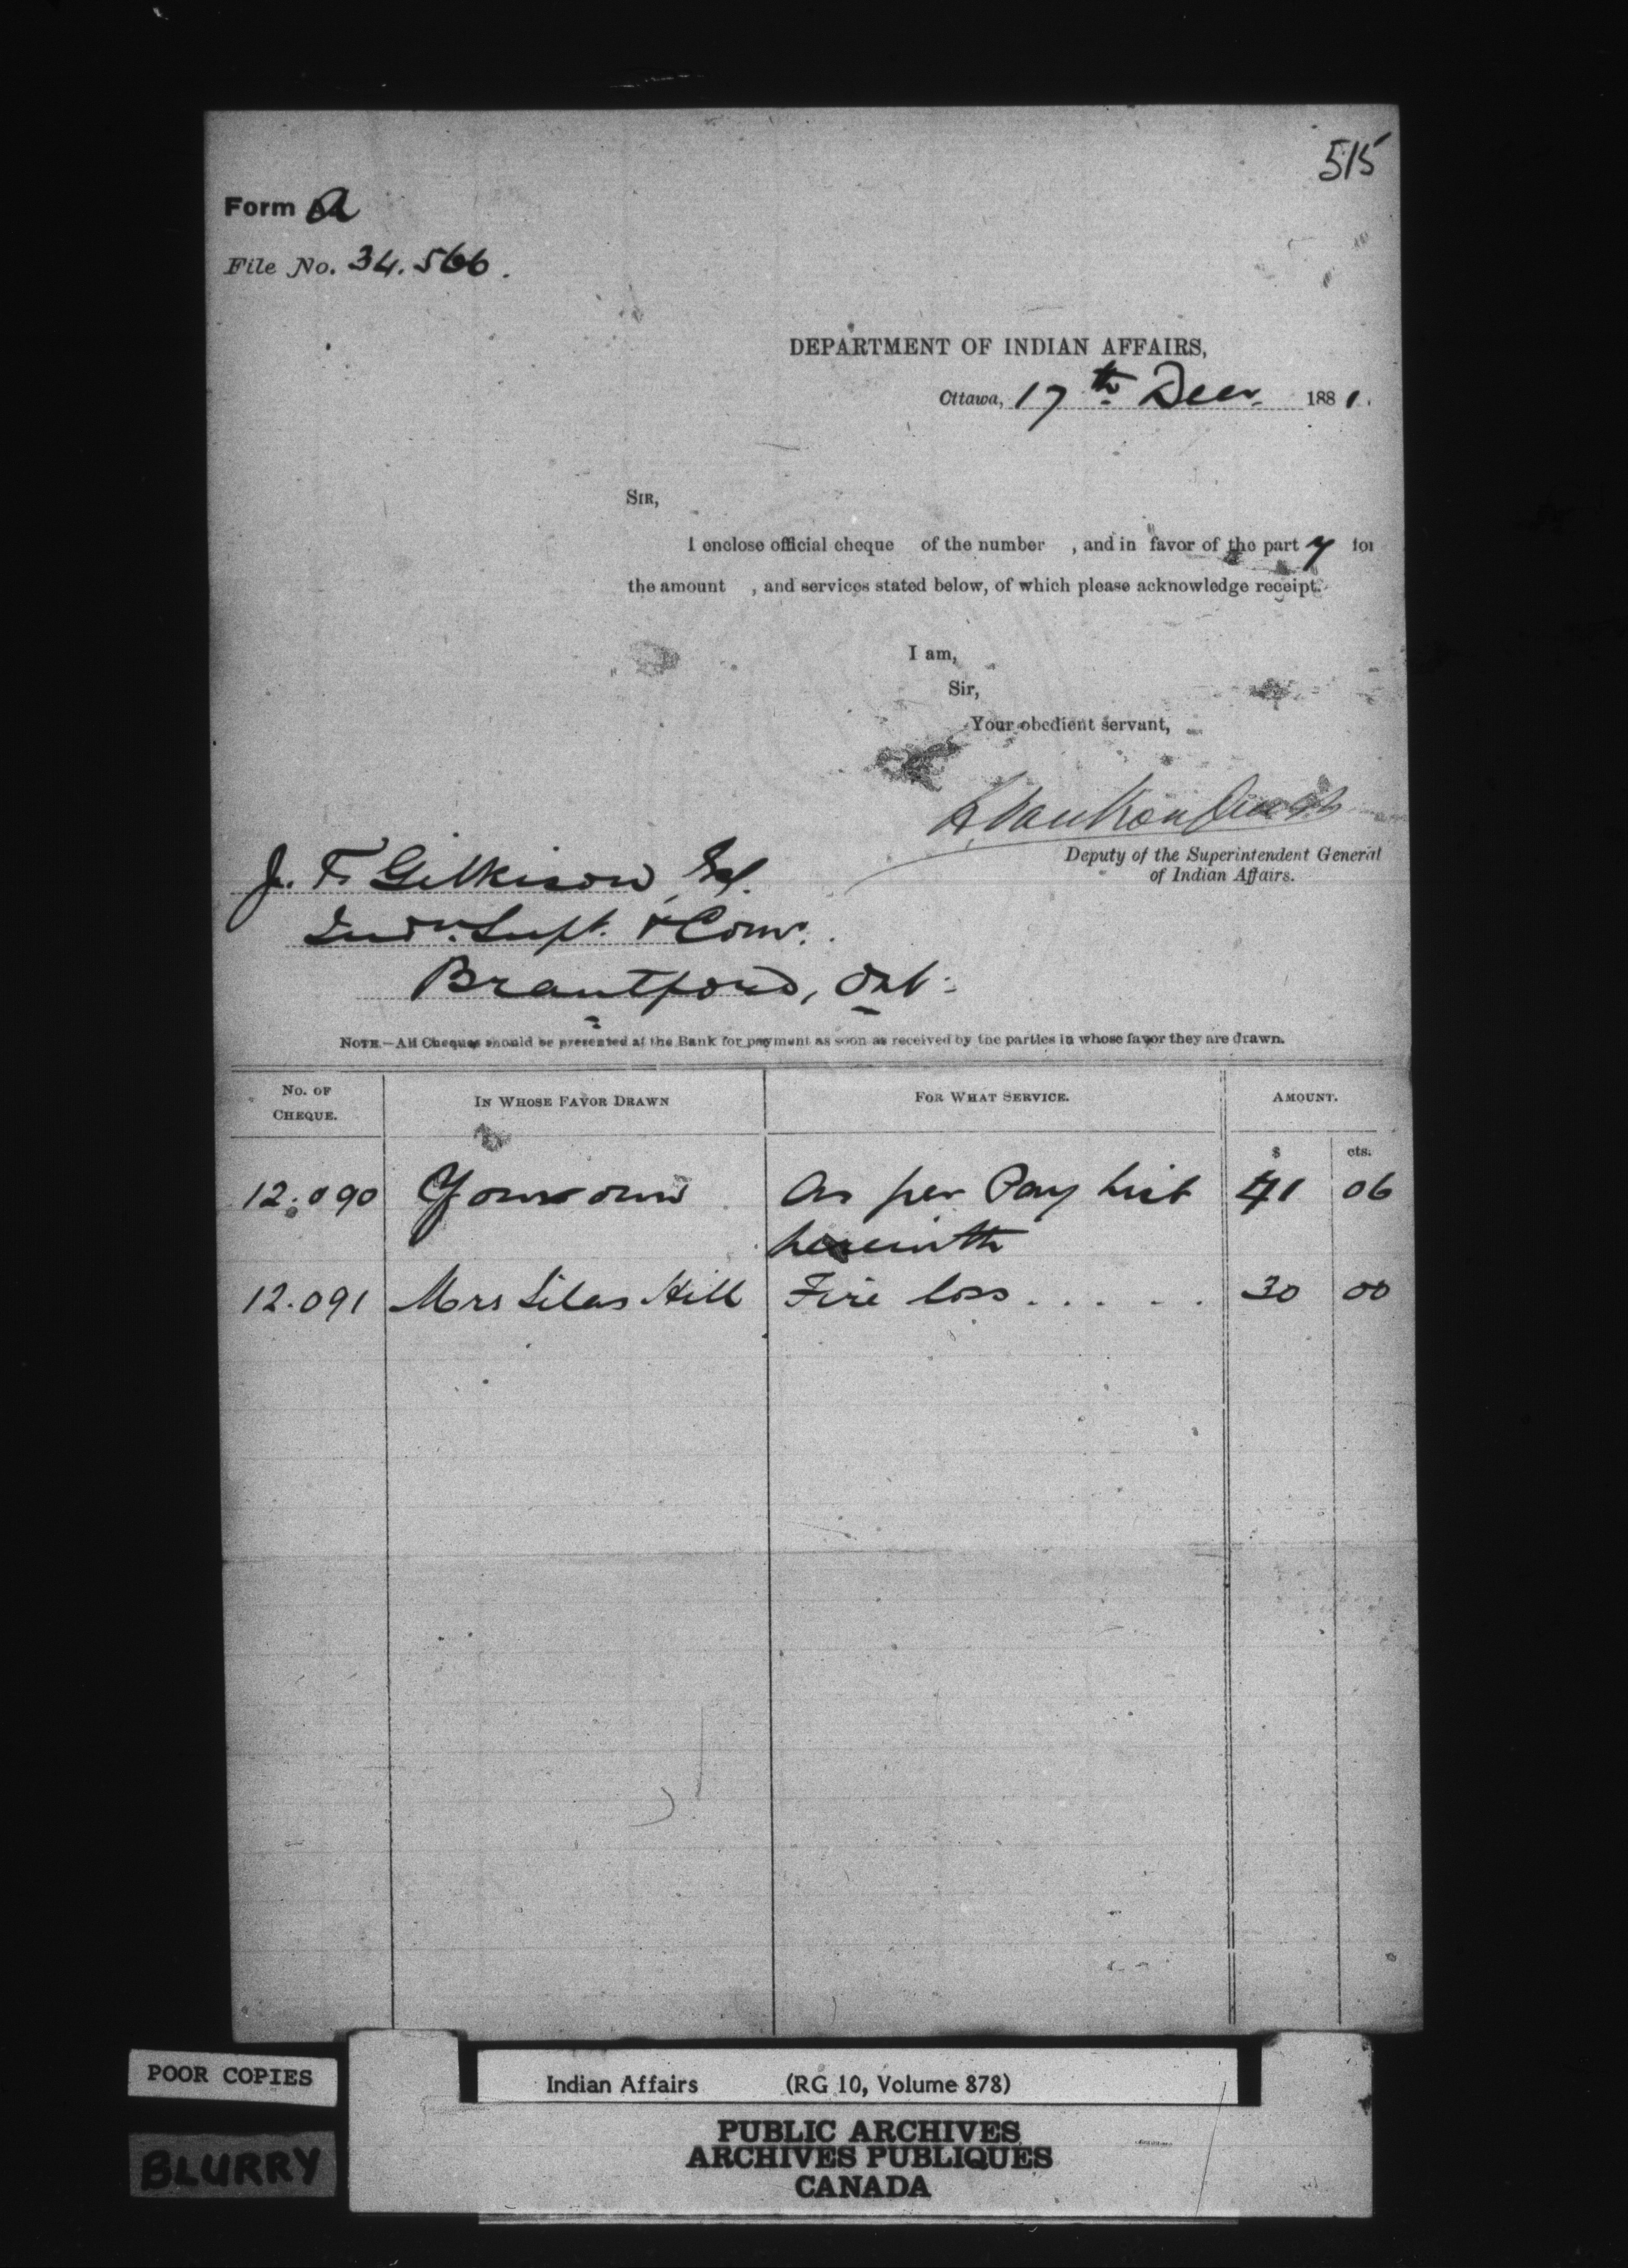 515
Form A
File No. 34.566.
DEPARTMENT OF INDIAN AFFAIRS,
Ottawa, 17th Decr. 1881.
SIR,
I enclose official cheque of the number , and in favor of the party for
the amount , and services stated below, of which please acknowledge receipt.
I am,
Sir,
Your obedient servant,
L. VanKoughnet
Deputy of the Superintendent General
of Indian Affairs.
J. T. Gilkison, Esq.
Indn. Supt. & Comr.
Brantford, Ont.
NOTE.—All Cheques should be presented at the Bank for payment as soon as received by the parties in whose favor they are drawn.
No. OF CHEQUE. IN WHOSE FAVOR DRAWN FOR WHAT SERVICE. AMOUNT.
$ cts.
12.090 Yourown As per Pay List 41 06
herewith
12.091 Mrs Silas Hill Fire loss . . . . . 30 00
POOR COPIES
BLURRY
Indian Affairs (RG 10, Volume 878)
PUBLIC ARCHIVES
ARCHIVES PUBLIQUES
CANADA